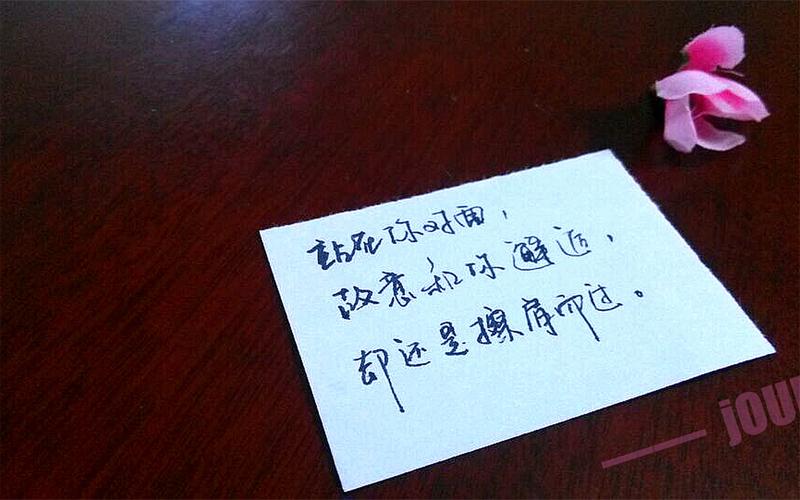 站在你对面，
故意和你邂逅，
却还是擦肩而过。
jou